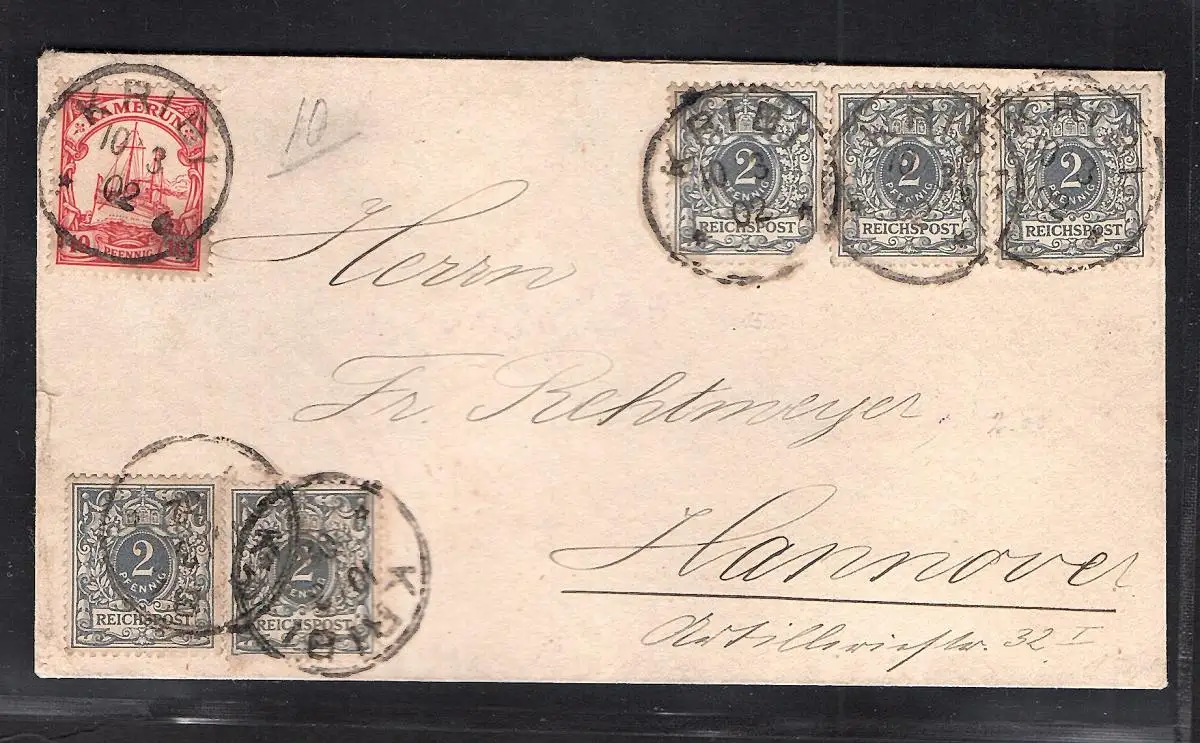 KAMERUN
10 PFENNIG 10
KRIBI
10 3
02
10
2
PFENNIG
REICHSPOST
KRIBI
10 3
02
2
PFENNIG
REICHSPOST
KRIBI
10 3
2
PFENNIG
REICHSPOST
KRIBI
10
Herrn
Fr. Rehtmeyer,
Hannover
Artilleriestr. 32 I
2
PFENNIG
REICHSPOST
2
PFENNIG
REICHSPOST
KRIBI
10